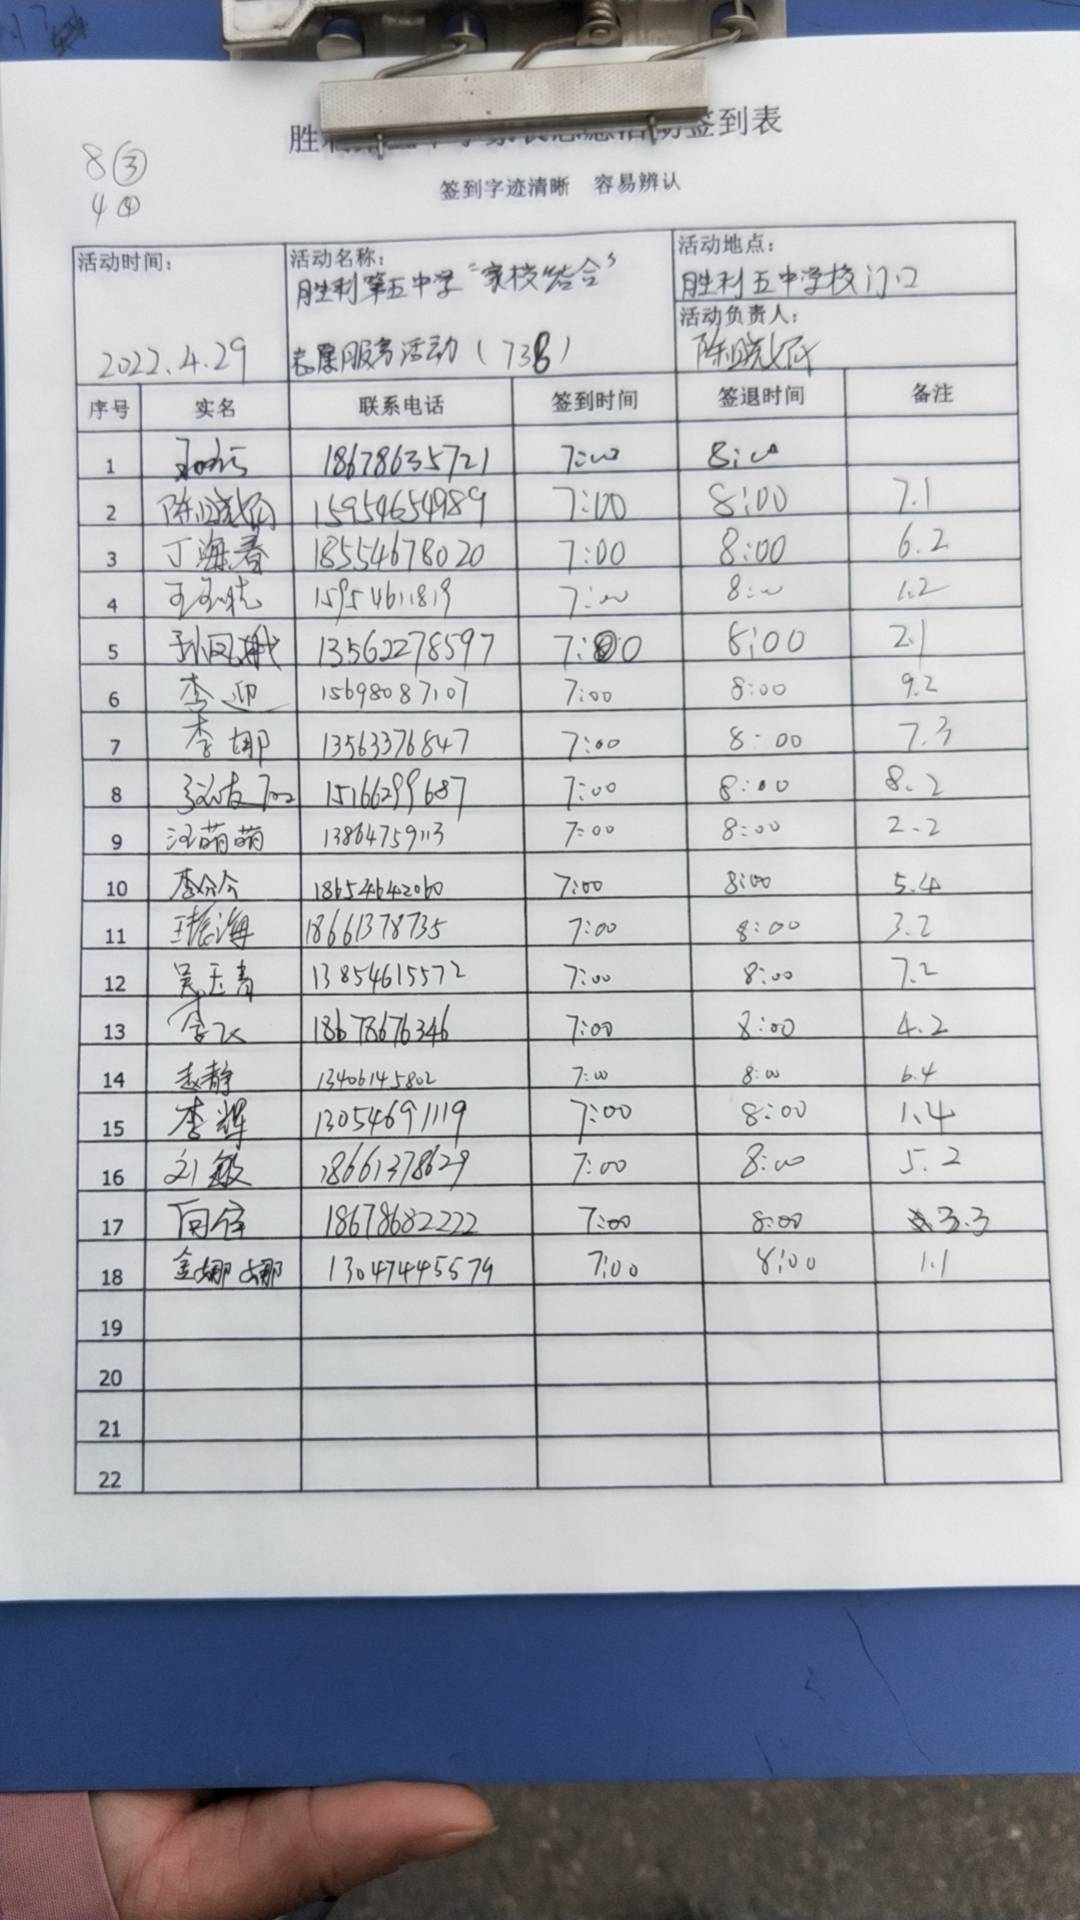 8③
4④
签到表
签到字迹清晰 容易辨认
活动时间: 2022.4.29
活动名称: 胜利第五中学"家校结合"
志愿服务活动(738)
活动地点: 胜利五中学校门口
活动负责人: 陈晓
序号 实名 联系电话 签到时间 签退时间 备注
1 18678635721 7:00 8:00
2 陈晓 15954654989 7:00 8:00 7.1
3 丁海春 18554678020 7:00 8:00 6.2
4 15954611819 7:00 8:00 1.2
5 孙凤娥 13562278597 7:00 8:00 2.1
6 李迎 15698087107 7:00 8:00 9.2
7 李娜 13563376847 7:00 8:00 7.3
8 15166299687 7:00 8:00 8.2
9 汪萌萌 13864759113 7:00 8:00 2.2
10 李分分 18654642060 7:00 8:00 5.4
11 王振海 18661378735 7:00 8:00 3.2
12 吴玉青 13854615572 7:00 8:00 7.2
13 李飞 18678676346 7:00 8:00 4.2
14 赵静 13406145802 7:00 8:00 6.4
15 李辉 13054691119 7:00 8:00 1.4
16 刘敏 18661378629 7:00 8:00 5.2
17 18678682222 7:00 8:00 3.3
18 金娜娜 13047445579 7:00 8:00 1.1
19
20
21
22